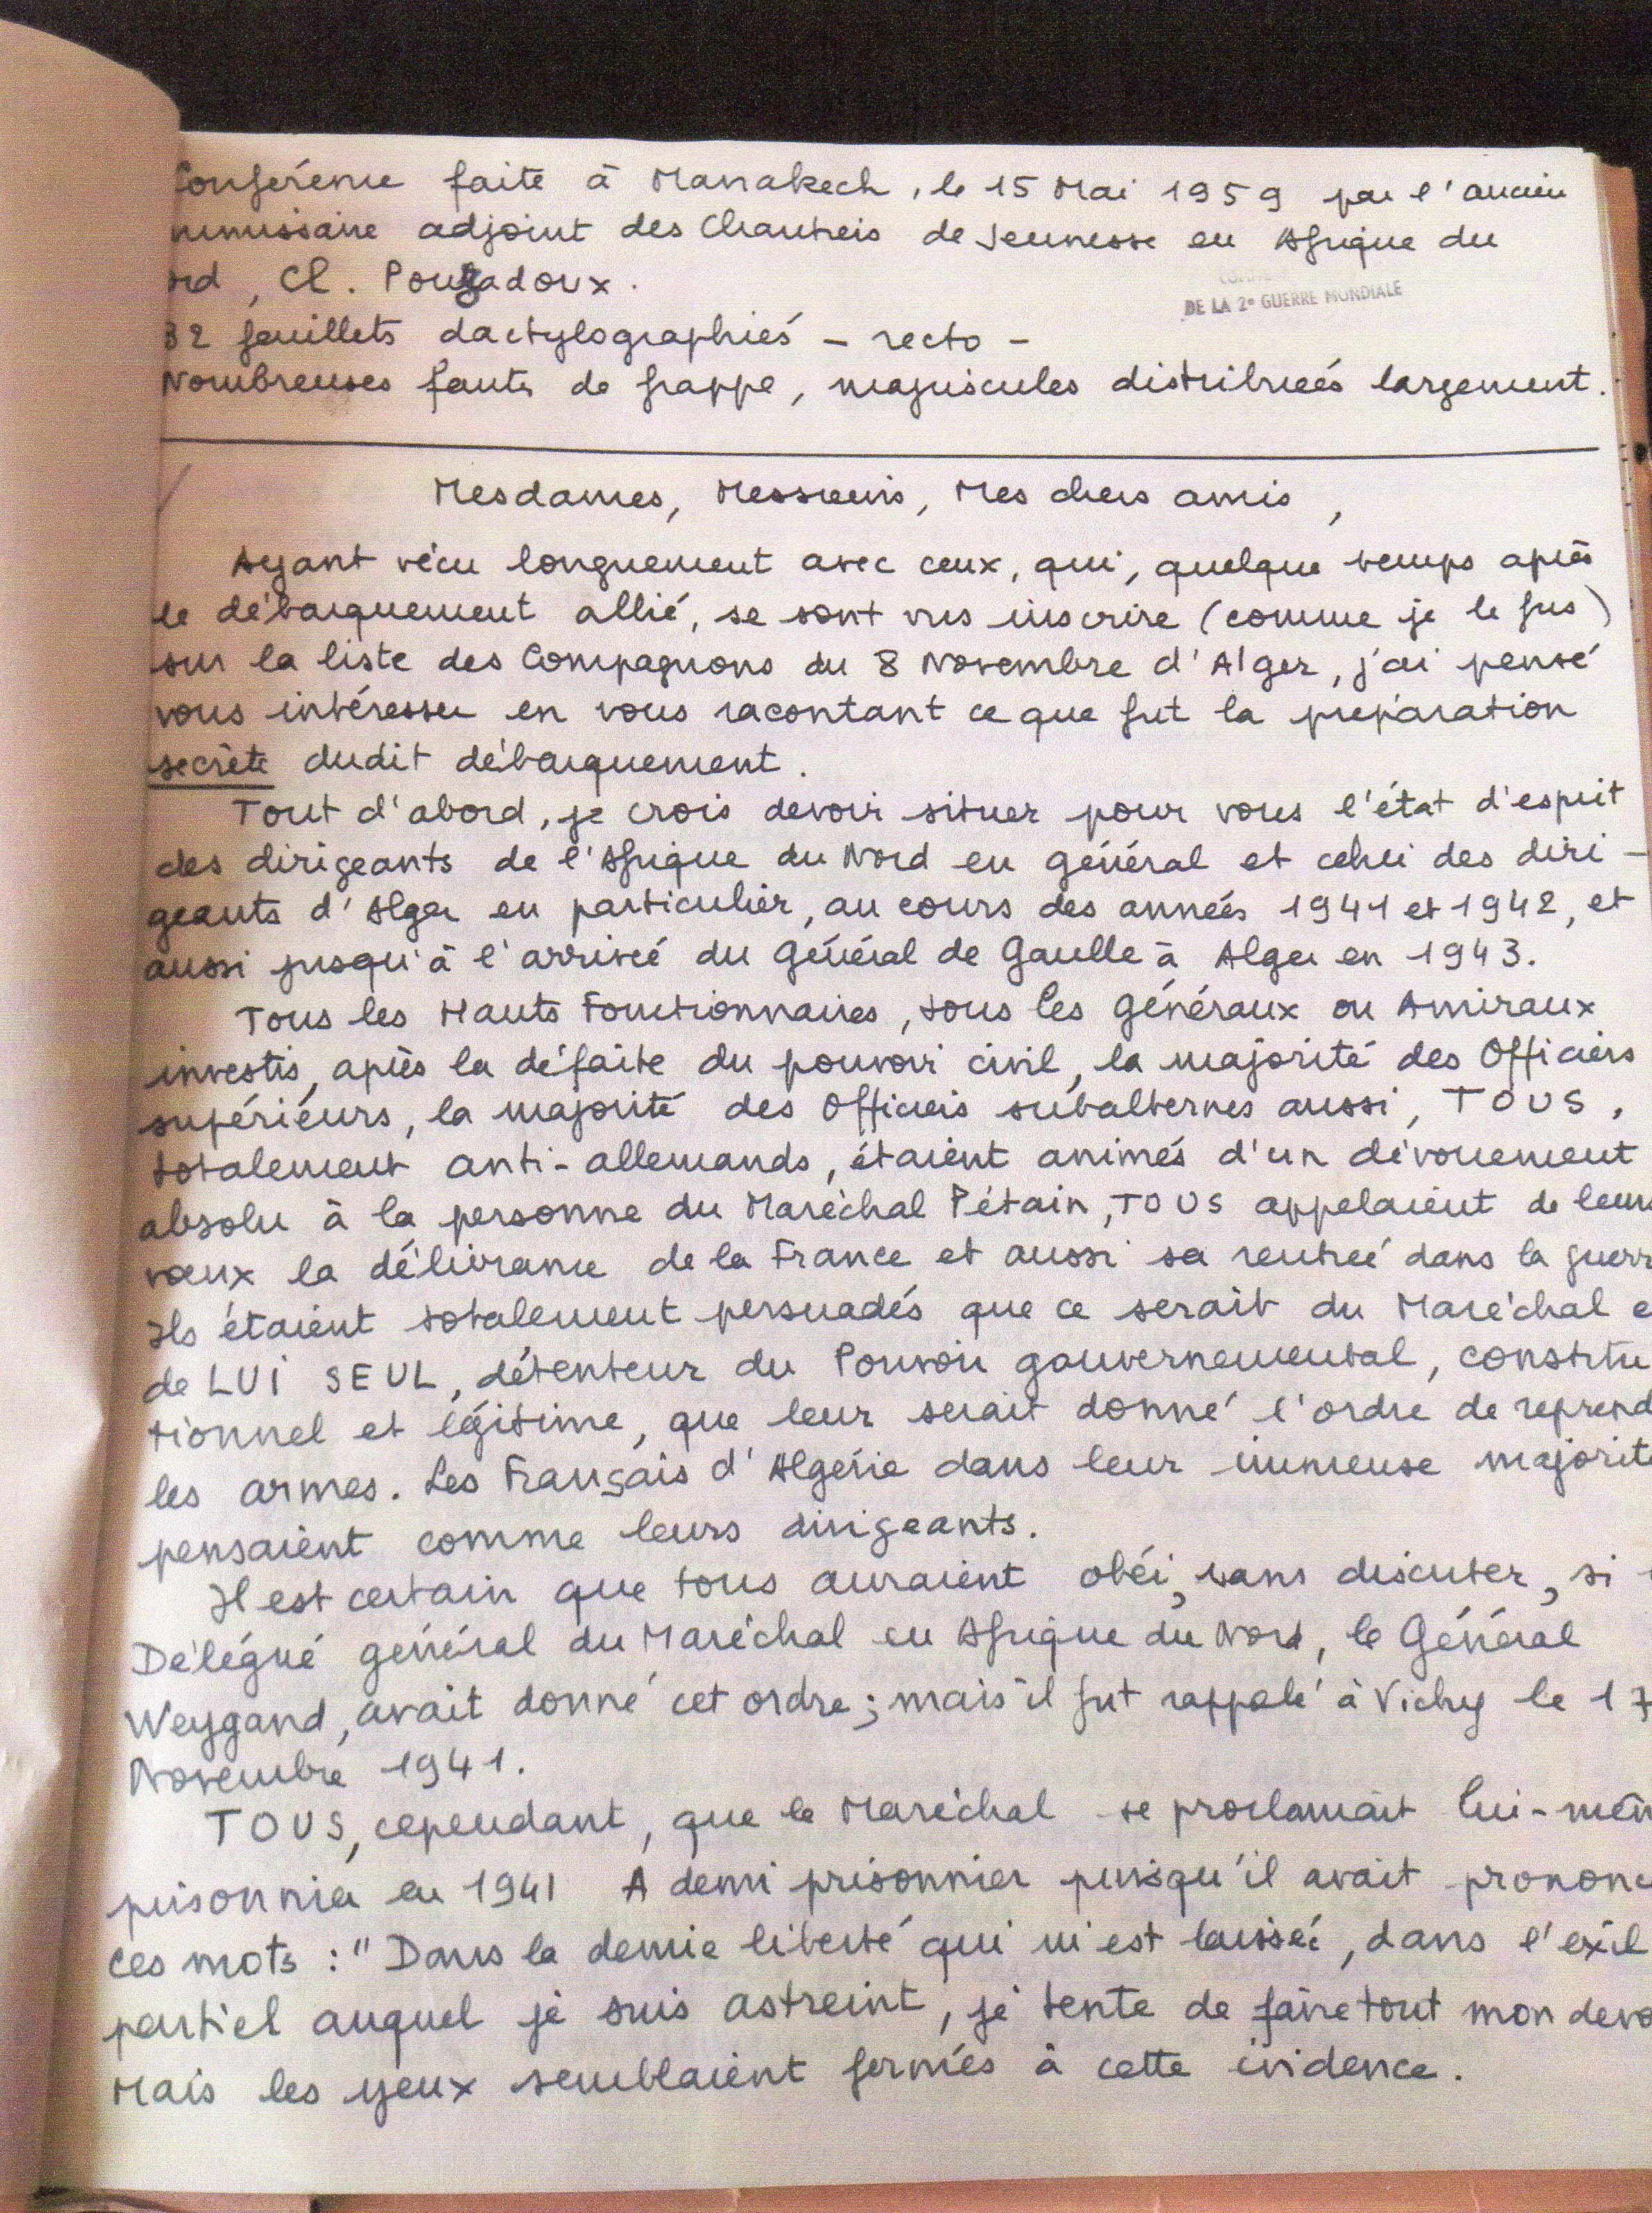 Conférence faite à Marrakech, le 15 Mai 1959 par l'ancien
mmissaire adjoint des Chantiers de Jeunesse en Afrique du
ord, Cl. Pouzadoux.
DE LA 2e GUERRE MONDIALE
32 feuillets dactylographiés - recto -
Nombreuses fautes de frappe, majuscules distribuées largement.
Mesdames, Messieurs, Mes chers amis,
Ayant vécu longuement avec ceux, qui, quelque temps après
le débarquement allié, se sont vus inscrire (comme je le fus)
sur la liste des Compagnons du 8 Novembre d'Alger, j'ai pensé
vous intéresser en vous racontant ce que fut la préparation
secrète dudit débarquement.
Tout d'abord, je crois devoir situer pour vous l'état d'esprit
des dirigeants de l'Afrique du Nord en général et celui des diri-
geants d'Alger en particulier, au cours des années 1941 et 1942, et
aussi jusqu'à l'arrivée du Général de Gaulle à Alger en 1943.
Tous les Hauts Fonctionnaires, tous les Généraux ou Amiraux
investis, après la défaite du pouvoir civil, la majorité des Officiers
supérieurs, la majorité des Officiers subalternes aussi, TOUS,
totalement anti-allemands, étaient animés d'un dévouement
absolu à la personne du Maréchal Pétain, TOUS appelaient de leurs
vœux la délivrance de la France et aussi sa rentrée dans la guerr
Ils étaient totalement persuadés que ce serait du Maréchal e
de LUI SEUL, détenteur du Pouvoir gouvernemental, constitu
tionnel et légitime, que leur serait donné l'ordre de reprend
les armes. Les Français d'Algérie dans leur immense majorité
pensaient comme leurs dirigeants.
Il est certain que tous auraient obéi, sans discuter, si
Délégué général du Maréchal en Afrique du Nord, le Général
Weygand, avait donné cet ordre; mais il fut rappelé à Vichy le 17
Novembre 1941.
TOUS, cependant, que le Maréchal se proclamait lui-mêm
prisonnier en 1941 A demi prisonnier puisqu'il avait prononc
ces mots : "Dans la demie liberté qui m'est laissée, dans l'exil
partiel auquel je suis astreint, je tente de faire tout mon devo
Mais les yeux semblaient fermés à cette évidence.